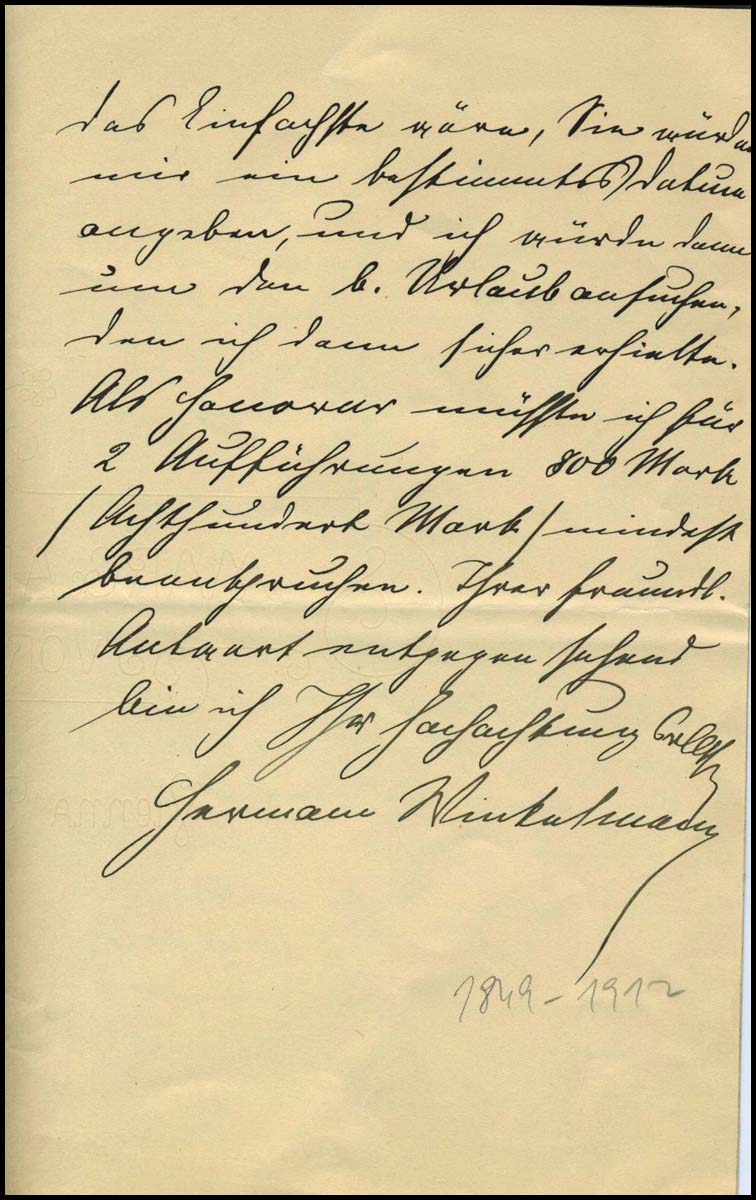 das Einfachste wäre, Sie würden
mir ein bestimmtes Datum
angeben, und ich würde dann
um den b. Urlaub ansuchen,
den ich dann sicher erhielte.
Als Honorar müßte ich für
2 Aufführungen 800 Mark
/Achthundert Mark/ mindest
beanspruchen. Ihrer freundl.
Antwort entgegen sehend
bin ich Ihr hochachtungsvollst
Hermann Winkelmann
1849-1912